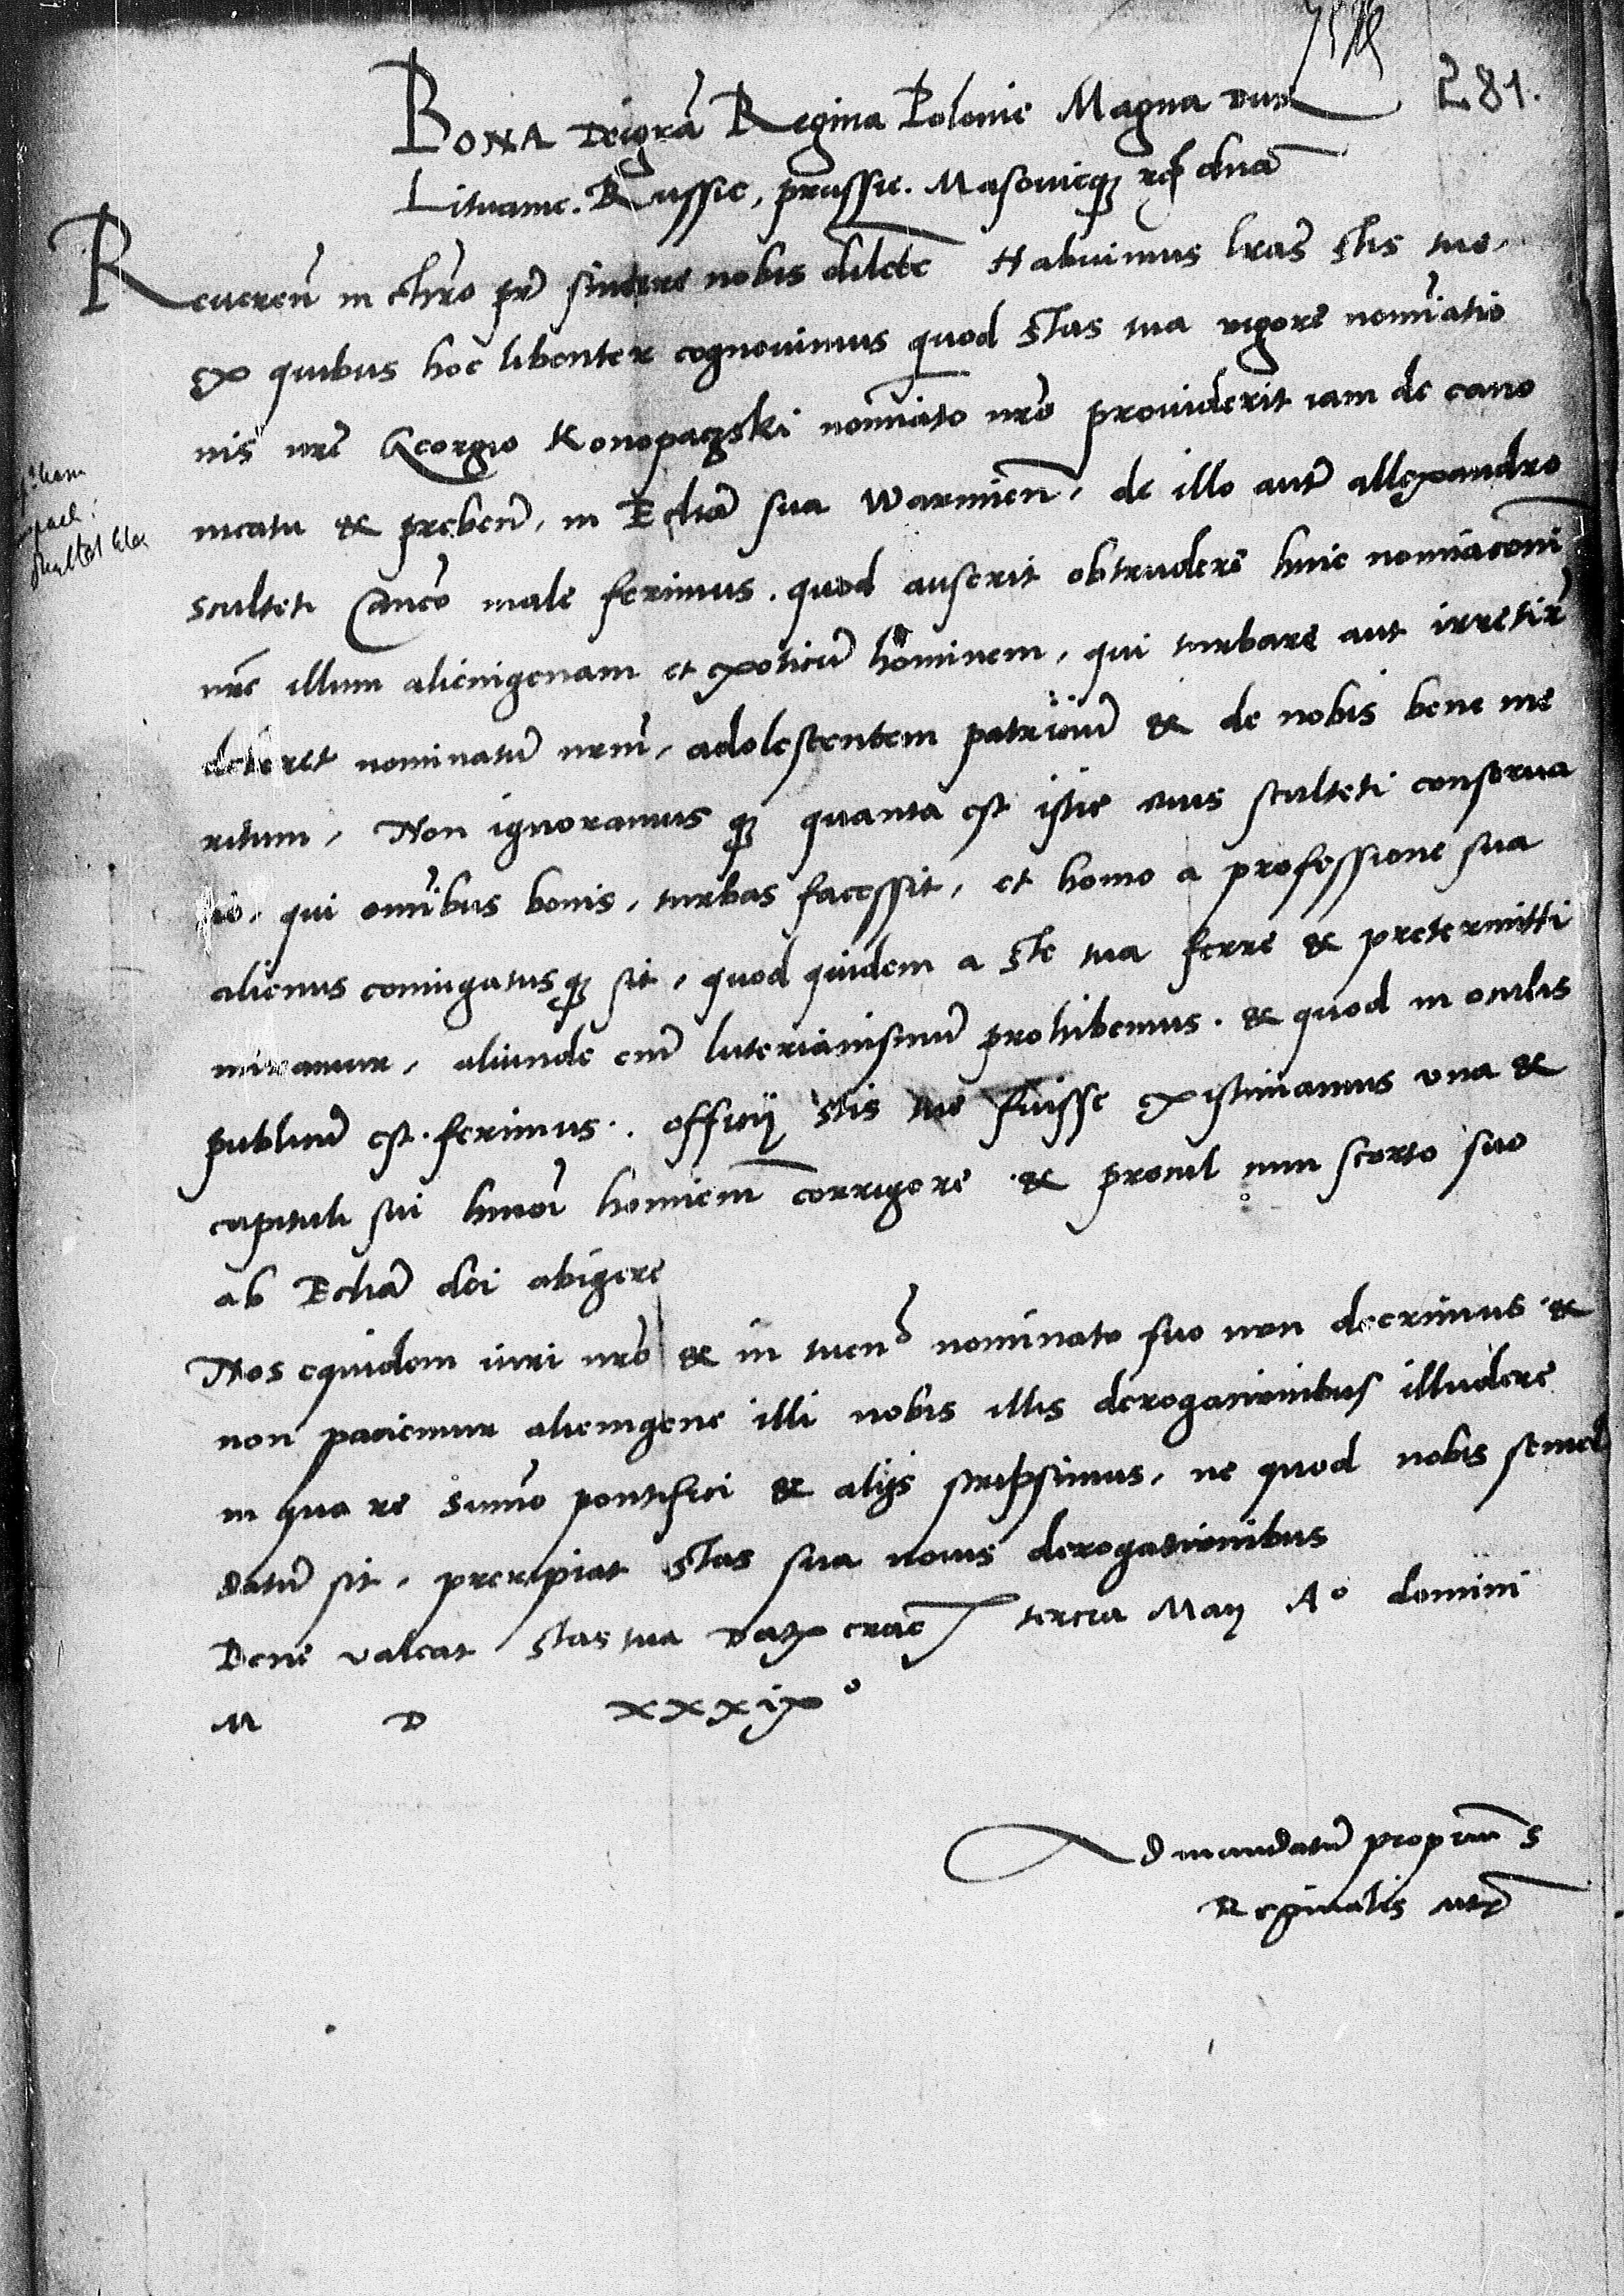 281.
BONA Dei grã Regina Polonie Magna Dux
Lituanie. Russie, prussie. Masovieq3 rc̃ dña
Reveren̄ in chr̃o pr̃ sincere nobis dilecte Habuimus lrãs St̃is tue.
ex quibus hoc libenter cognovimus quod St̃as tua vigore nominatio
nis nr̃e Georgio Konopaczski nominato nr̃o providerit iam de cano
nicatu & preben̄. in Eccliã sua Warmien̄. de illo autẽ allexandro
sculteti Canco male ferimus. quod ausit obtrudere huic nominaconi
nr̃e illum alienigenam et exoticũ hominem, qui turbare aut irretire
deberet nominatũ nrm̃, adolescentem patriciũ & de nobis bene me
ritum, Non ignoramus q3 quanta est istic eius sculteti conserva
tio. qui omĩbus bonis, turbas facessit, et homo a professione sua
alienus coniugatusq3 sit, quod quidem a St̃e tua ferre & pretermitti
miramur, aliunde enĩ luterianismũ prohibemus. & quod in oculis
publicũ est. ferimus. officij St̃is tue fuisse existimamus una &
capituli sui hmõi hominem corrigere & procul cum scorto suo
ab Eccliã dei abigere
Nos equidem iuri nr̃o & in tuen̄o nominato suo non deerimus &
non paciemur alienigene illi nobis illis derogationibus illudere
in qua re Summo pontifici & alijs scripsimus, ne quod nobis semel
datũ sit, preripiat St̃as sua novis derogationibus
Bene valeat St̃as tua Datx crac̃ tercia Maij A° domini
M D XXXIX°
Ad mandatũ propriũ S
Reginalis Mtis̃